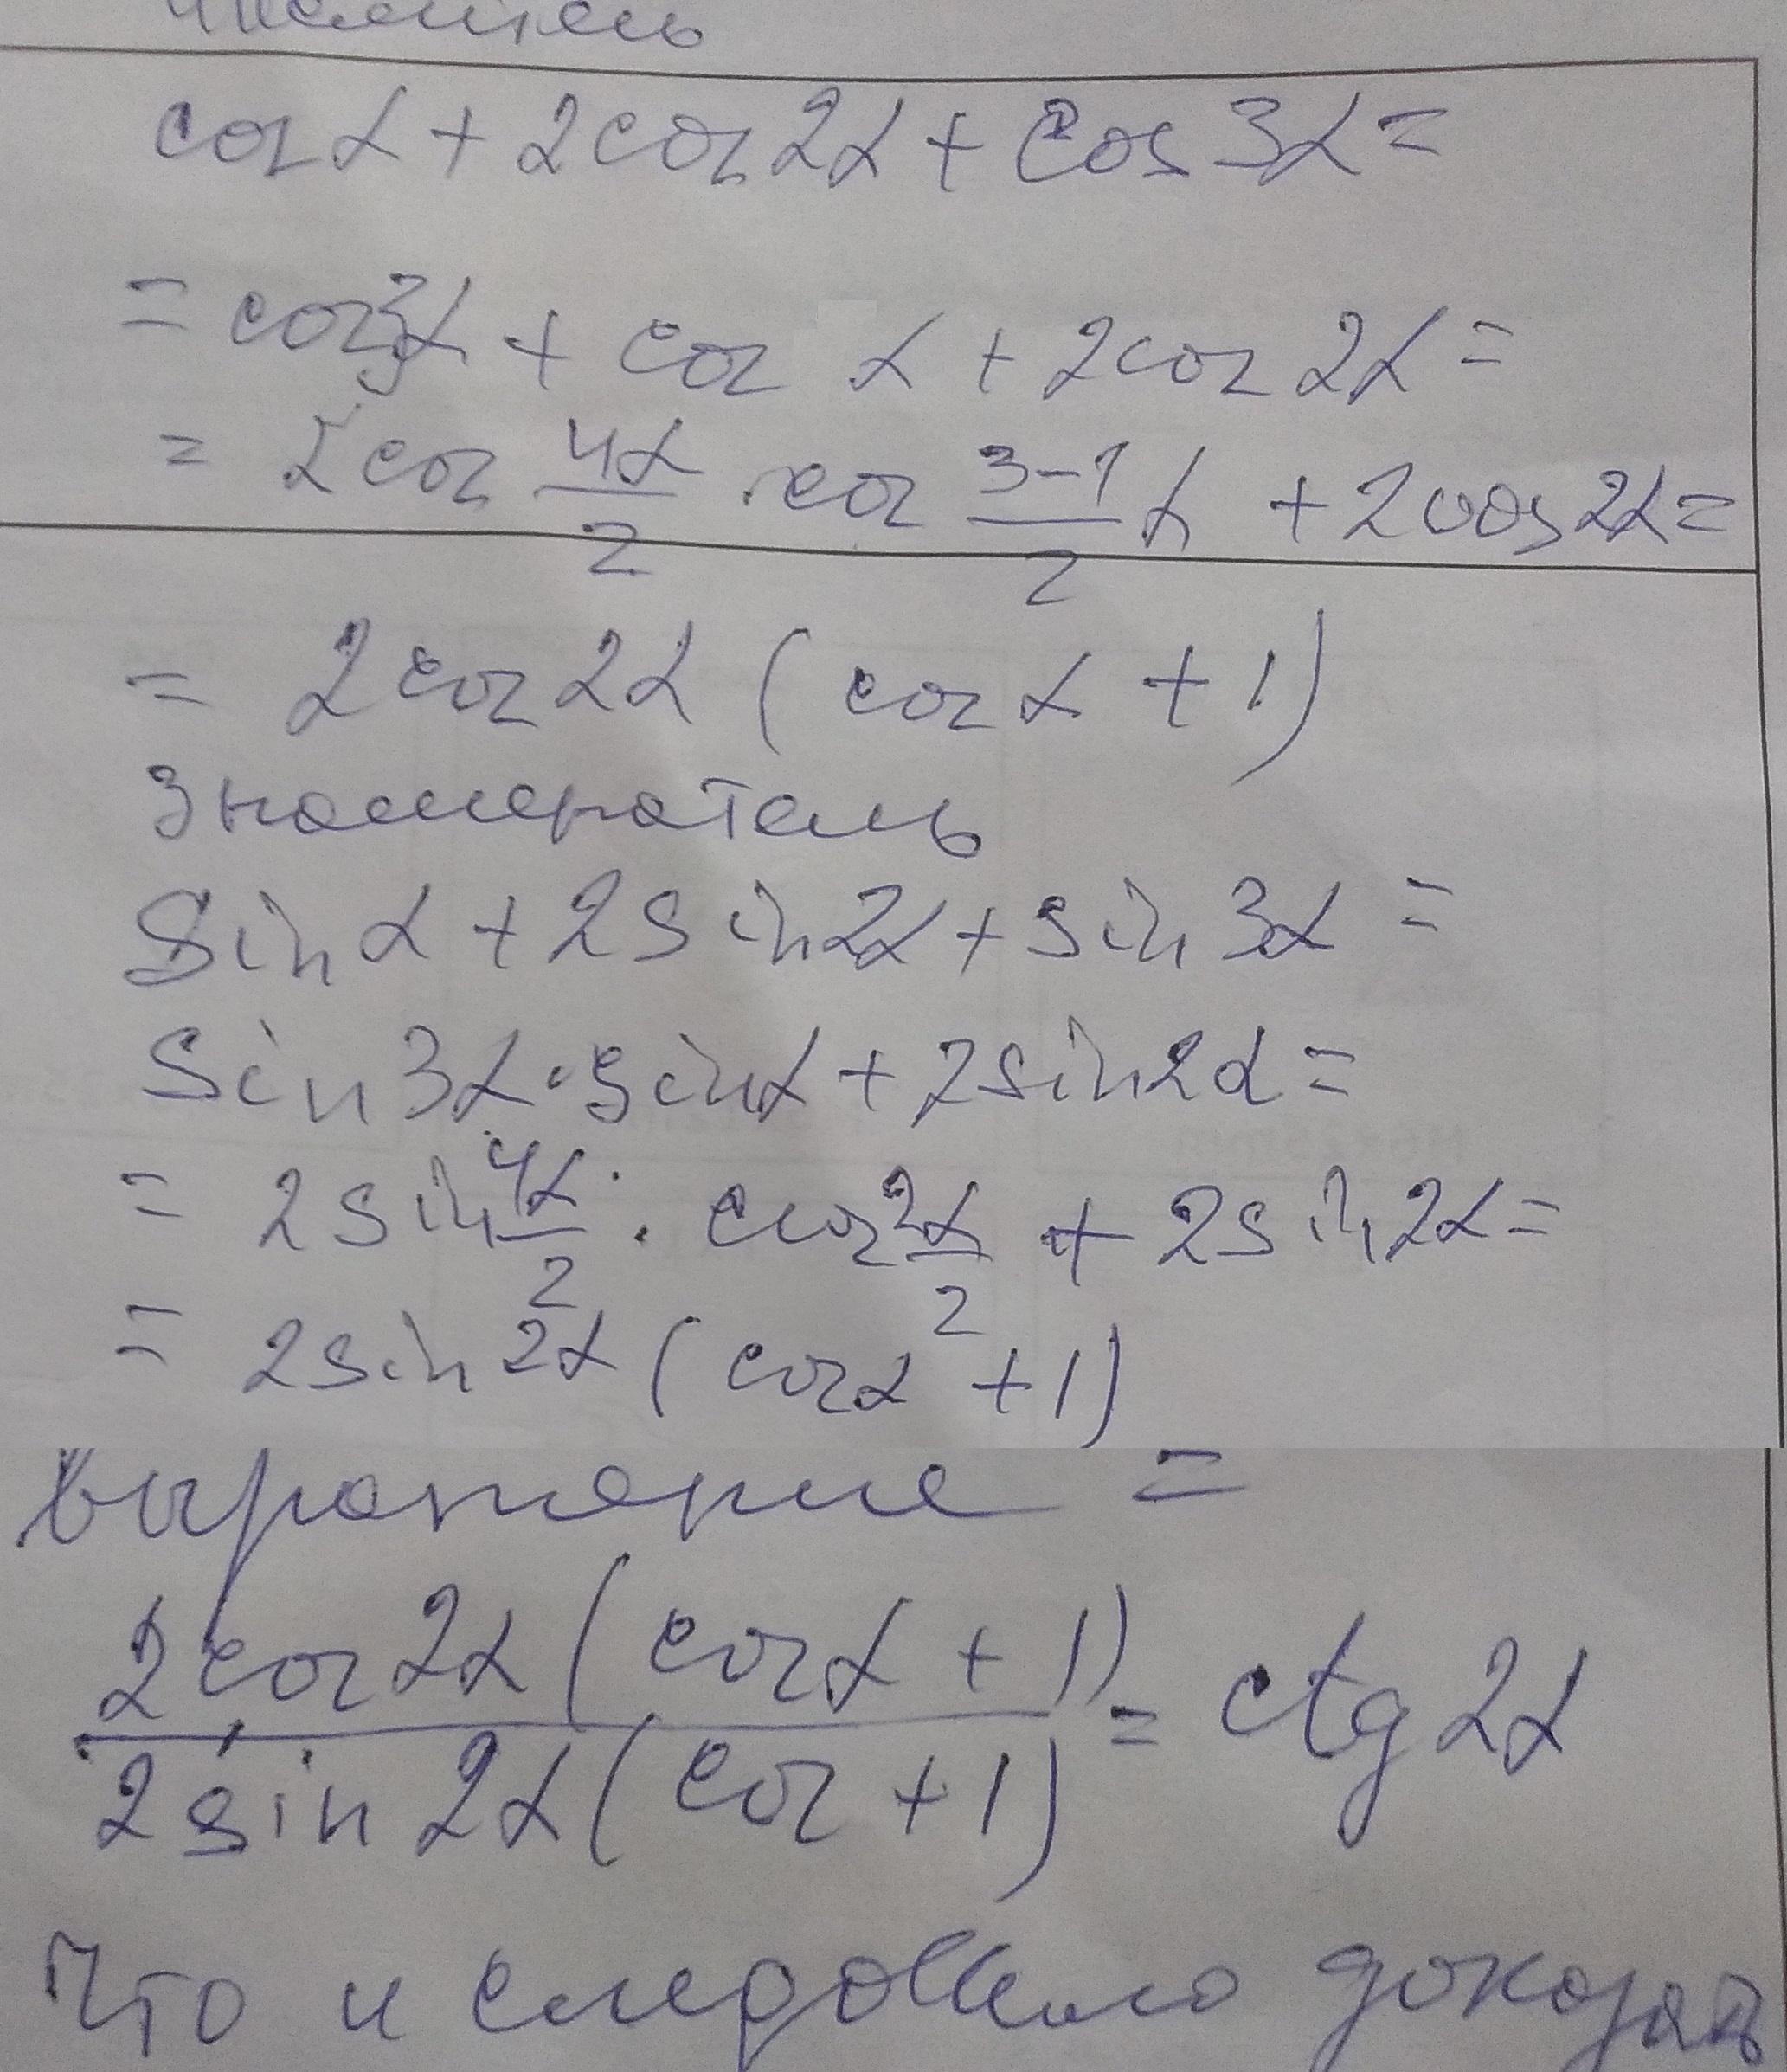 числитель
cos α + 2cos 2α + cos 3α =
= cos 3α + cos α + 2cos 2α =
= 2cos 4α/2 · cos (3-1)/2 α + 2cos 2α =
= 2cos 2α (cos α + 1)
знаменатель
sin α + 2sin 2α + sin 3α =
sin 3α · sin α + 2sin 2α =
= 2sin 4α/2 · cos 2α/2 + 2sin 2α =
= 2sin 2α (cos α + 1)
выражение =
2cos 2α (cos α + 1) / 2sin 2α (cos + 1) = ctg 2α
Что и следовало доказать